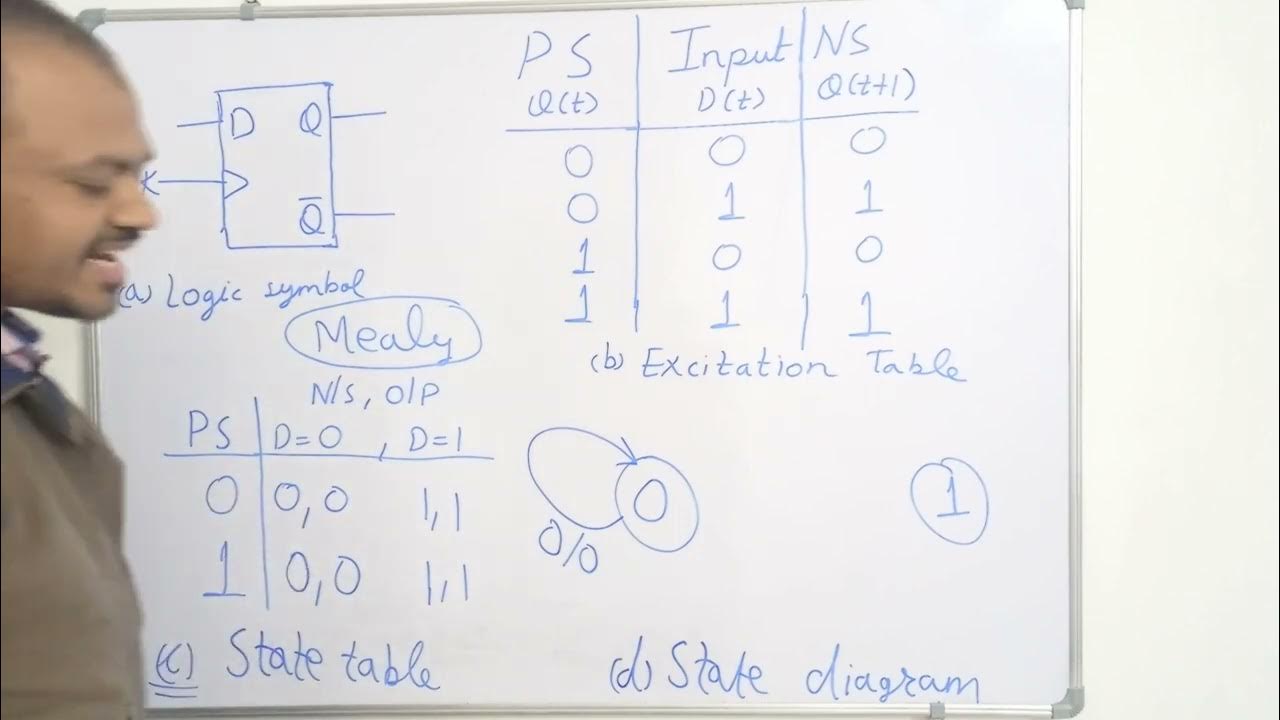 D Q
Q̅
(a) Logic symbol
PS Input NS
Q(t) D(t) Q(t+1)
0 0 0
0 1 1
1 0 0
1 1 1
(b) Excitation Table
Mealy
N/S, O/P
PS D=0, D=1
0 0,0 1,1
1 0,0 1,1
(c) State table
0 1
0/0
(d) State diagram